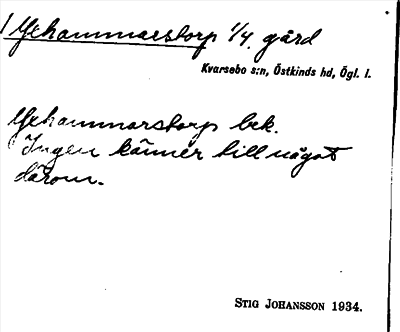 Yxhammarstorp 1/4 gård
Kvarsebo s:n, Östkinds hd, Ögl. l.
Yxhammarstorp bek.
Ingen känner till något
därom.
STIG JOHANSSON 1934.